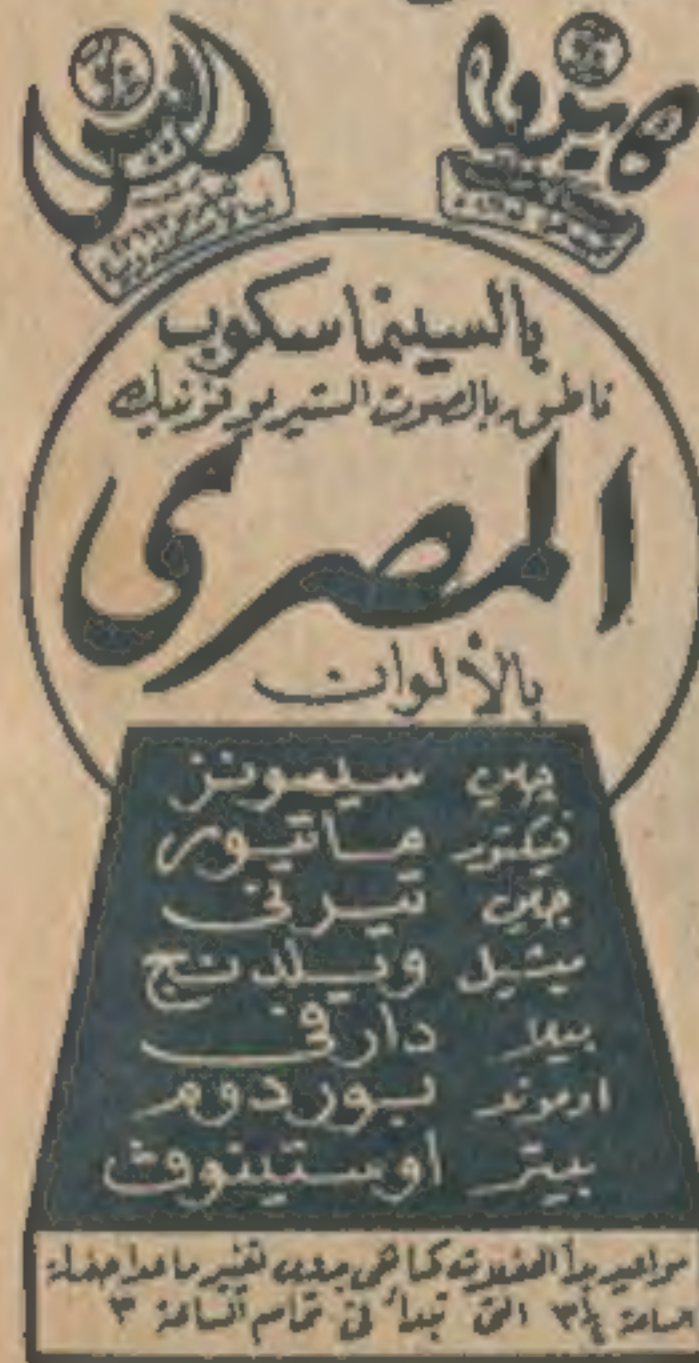 كايرو
بالسينما سكوب
ناطق بالصوت الستيريوفونيك
المصرى
بالألوان
چين سيمونز
ڤيكتور ماتيور
چين تيرنى
ميشيل ويلدنج
بيلا دارفى
ادموند بوردوم
بيتر اوستينوف
مواعيد بدأ الحفلات كما هى بدون تغيير ماعدا حفلة
الساعة ٣½ التى تبدأ فى تمام الساعة ٣